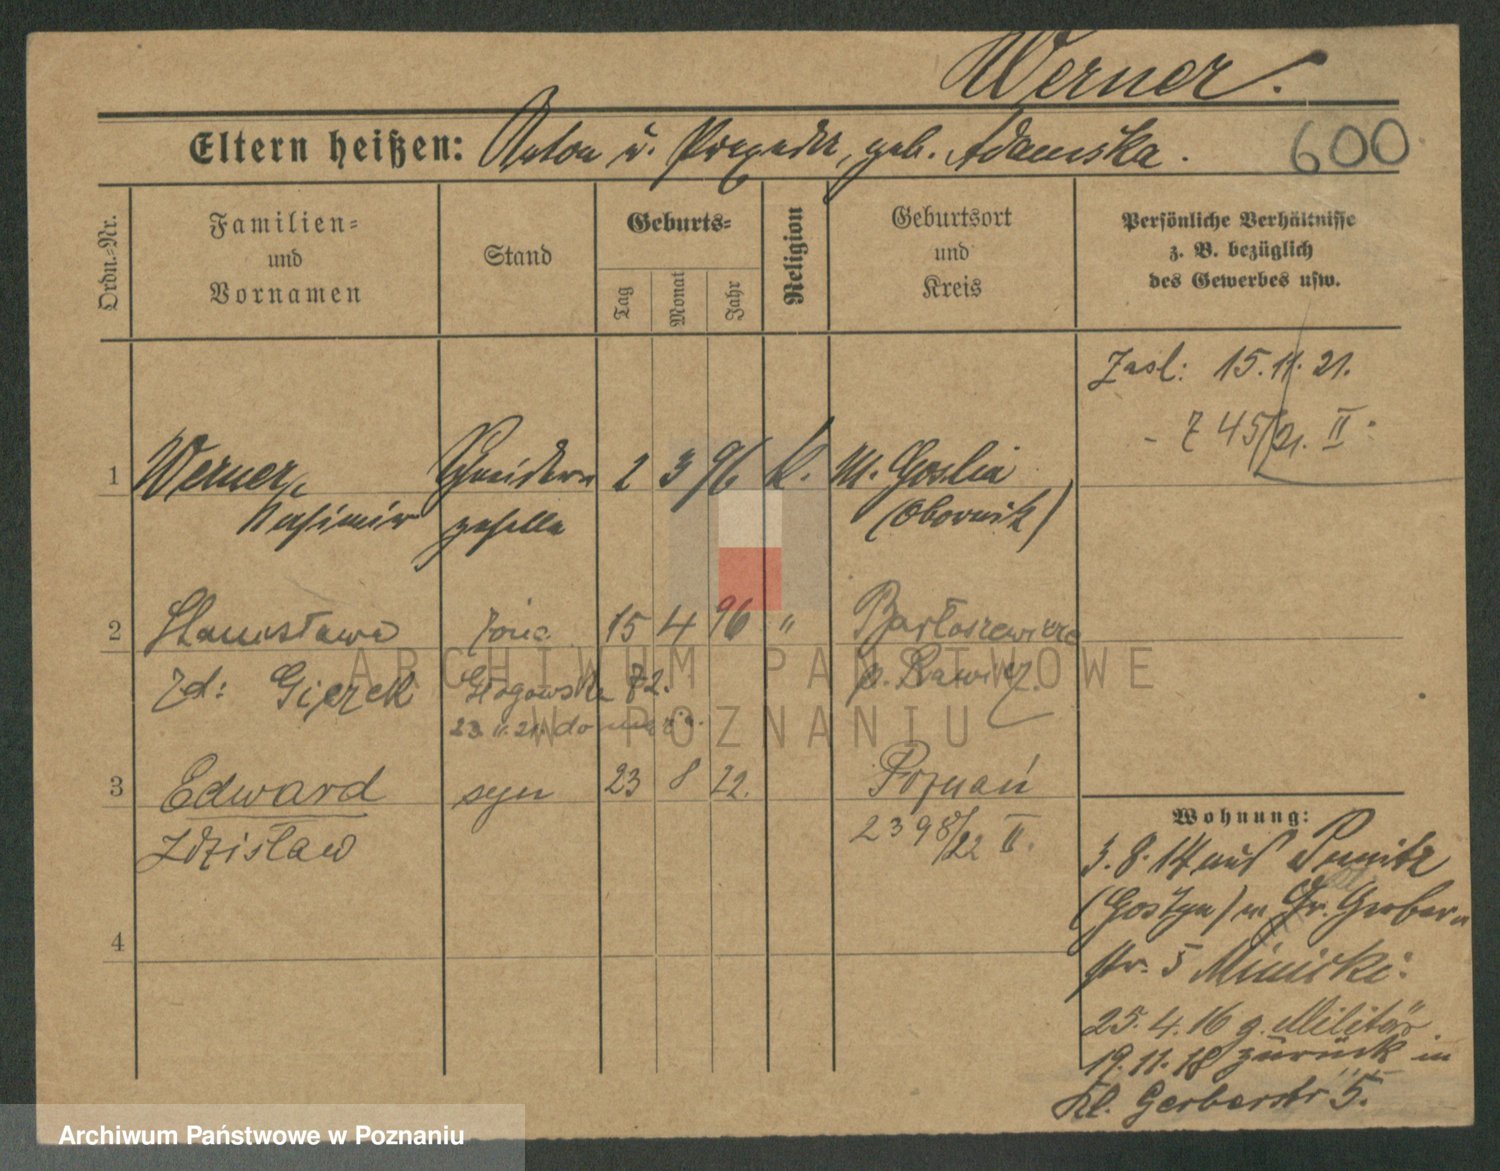 Werner.
Eltern heißen: Anton u. Praxeda, geb. Adamska.
600
Ordn.-Nr.
Familien-
und
Vornamen
Stand
Geburts-
Tag
Monat
Jahr
Religion
Geburtsort
und
Kreis
Persönliche Verhältnisse
z. B. bezüglich
des Gewerbes usw.
Zasl: 15. 11. 21.
- Z 45/21. II
1 Werner, Schneider 2 3 96 K. M. Goslin
Kasimir geselle (Obornik)
2 Stanisława żona 15 4 96 " Bartoszewice
zd: Gierek Głogowska 82. p. Rawicz.
23. 11. 21.
3 Edward syn 23 8 22. Poznań
Zdzisław 2398/22 II.
4
Wohnung:
3. 8. 14 aus Punitz
(Gostyn) n. Gr. Gerber
str. 5
25. 4. 16 z. Militär
19. 11. 18 zurück in
Kl. Gerberstr 5.
ARCHIWUM PAŃSTWOWE
W POZNANIU
Archiwum Państwowe w Poznaniu